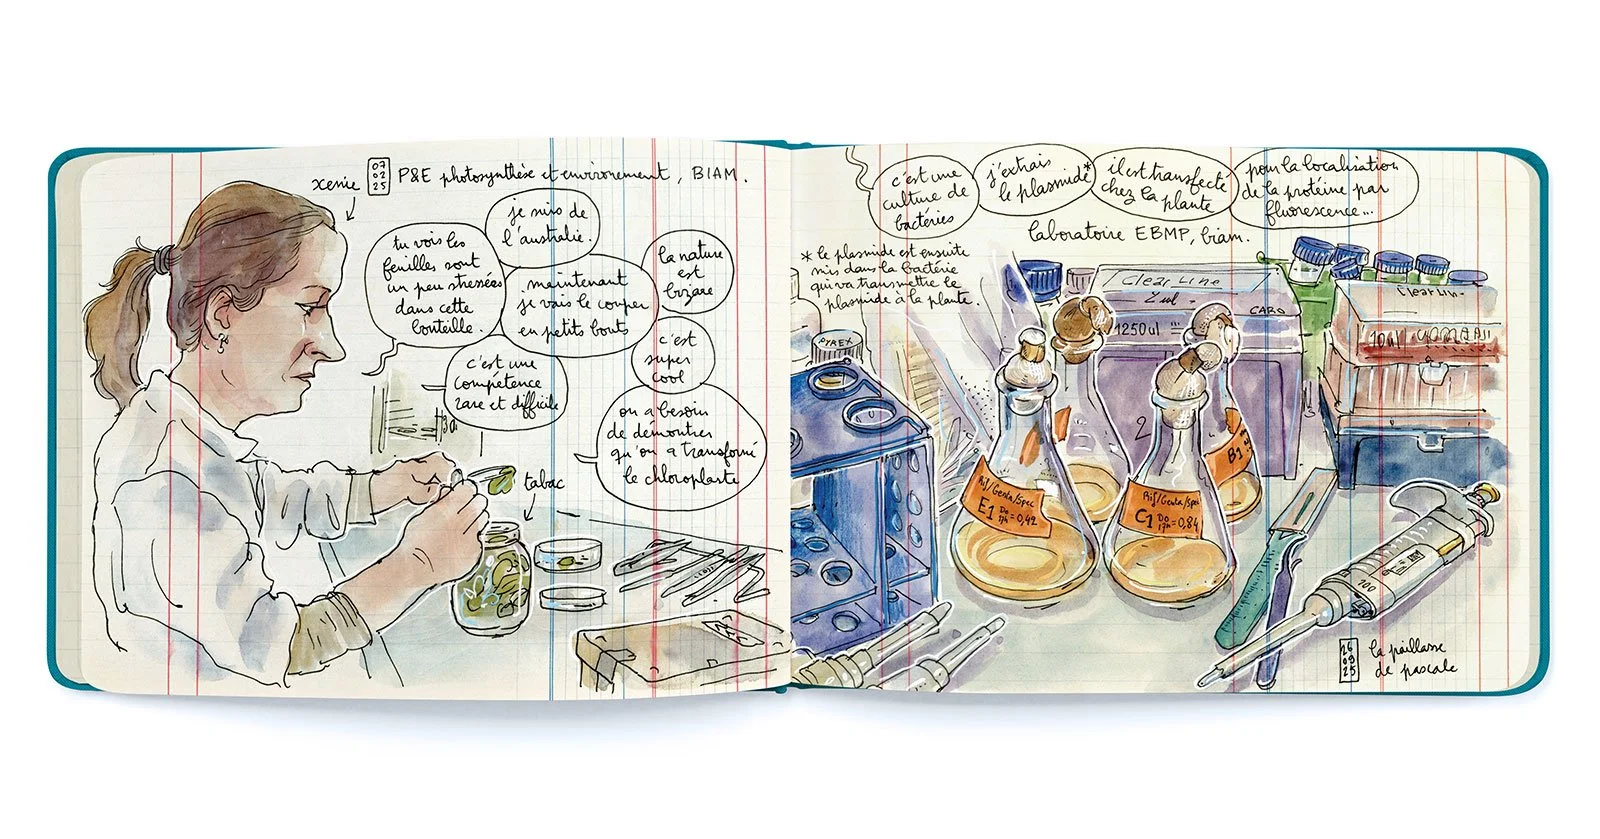 xenie
07
02
25
P&E photosynthèse et environnement, BIAM.
je suis de
l'australie.
tu vois les
feuilles sont
un peu stressées
dans cette
bouteille.
maintenant
je vais le couper
en petits bouts
la nature
est
bizare
c'est
super
cool
c'est une
compétence
rare et difficile
on a besoin
de démontrer
qu'on a transformé
le chloroplaste
tabac
c'est une
culture de
bactéries
j'extrais
le plasmide*
il est transfecté
chez la plante
pour la localisation
de la protéine par
fluorescence...
laboratoire EBMP, biam.
* le plasmide est ensuite
mis dans la bactérie
qui va transmettre le
plasmide à la plante.
PYREX
Clear Line
1250ul
CARO
ClearLin-
2
Rif/Genta/Spec
E1 Do
17h = 0,42
Rif/Genta/Spec
C1 Do
17h = 0,84
B1
100
26
09
25
la paillasse
de pascale